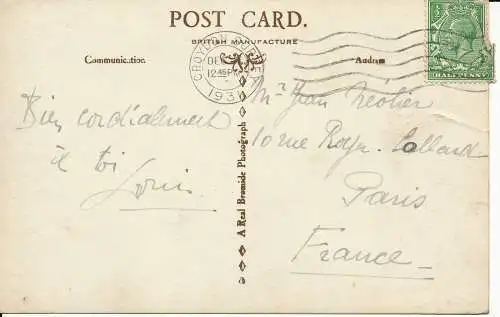 POST CARD.
BRITISH MANUFACTURE
Communication.
Address
CROYDON
DE
12.45 PM
1931
HALFPENNY
Bien cordialement
à toi
Louis
A Real Bromide Photograph
Mr Jean
10 rue Royer-Collard
Paris
France